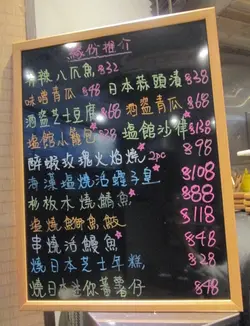 緣份推介
麻辣八爪魚 $32
味噌青瓜 $48 日本蒜頭漬 $38
酒盜芝士豆腐 $68 酒盜青瓜 $68
塩館小龍包 $28 塩館沙律 $138
醉蝦玫瑰火焰燒 2pc $98
海藻塩燒活蟶子皇 $108
水燒鱔魚 $88
塩燒飯 $118
串燒活鰻魚 $48
燒日本芝士年糕 $28
燒日本迷你蕃薯仔 $48